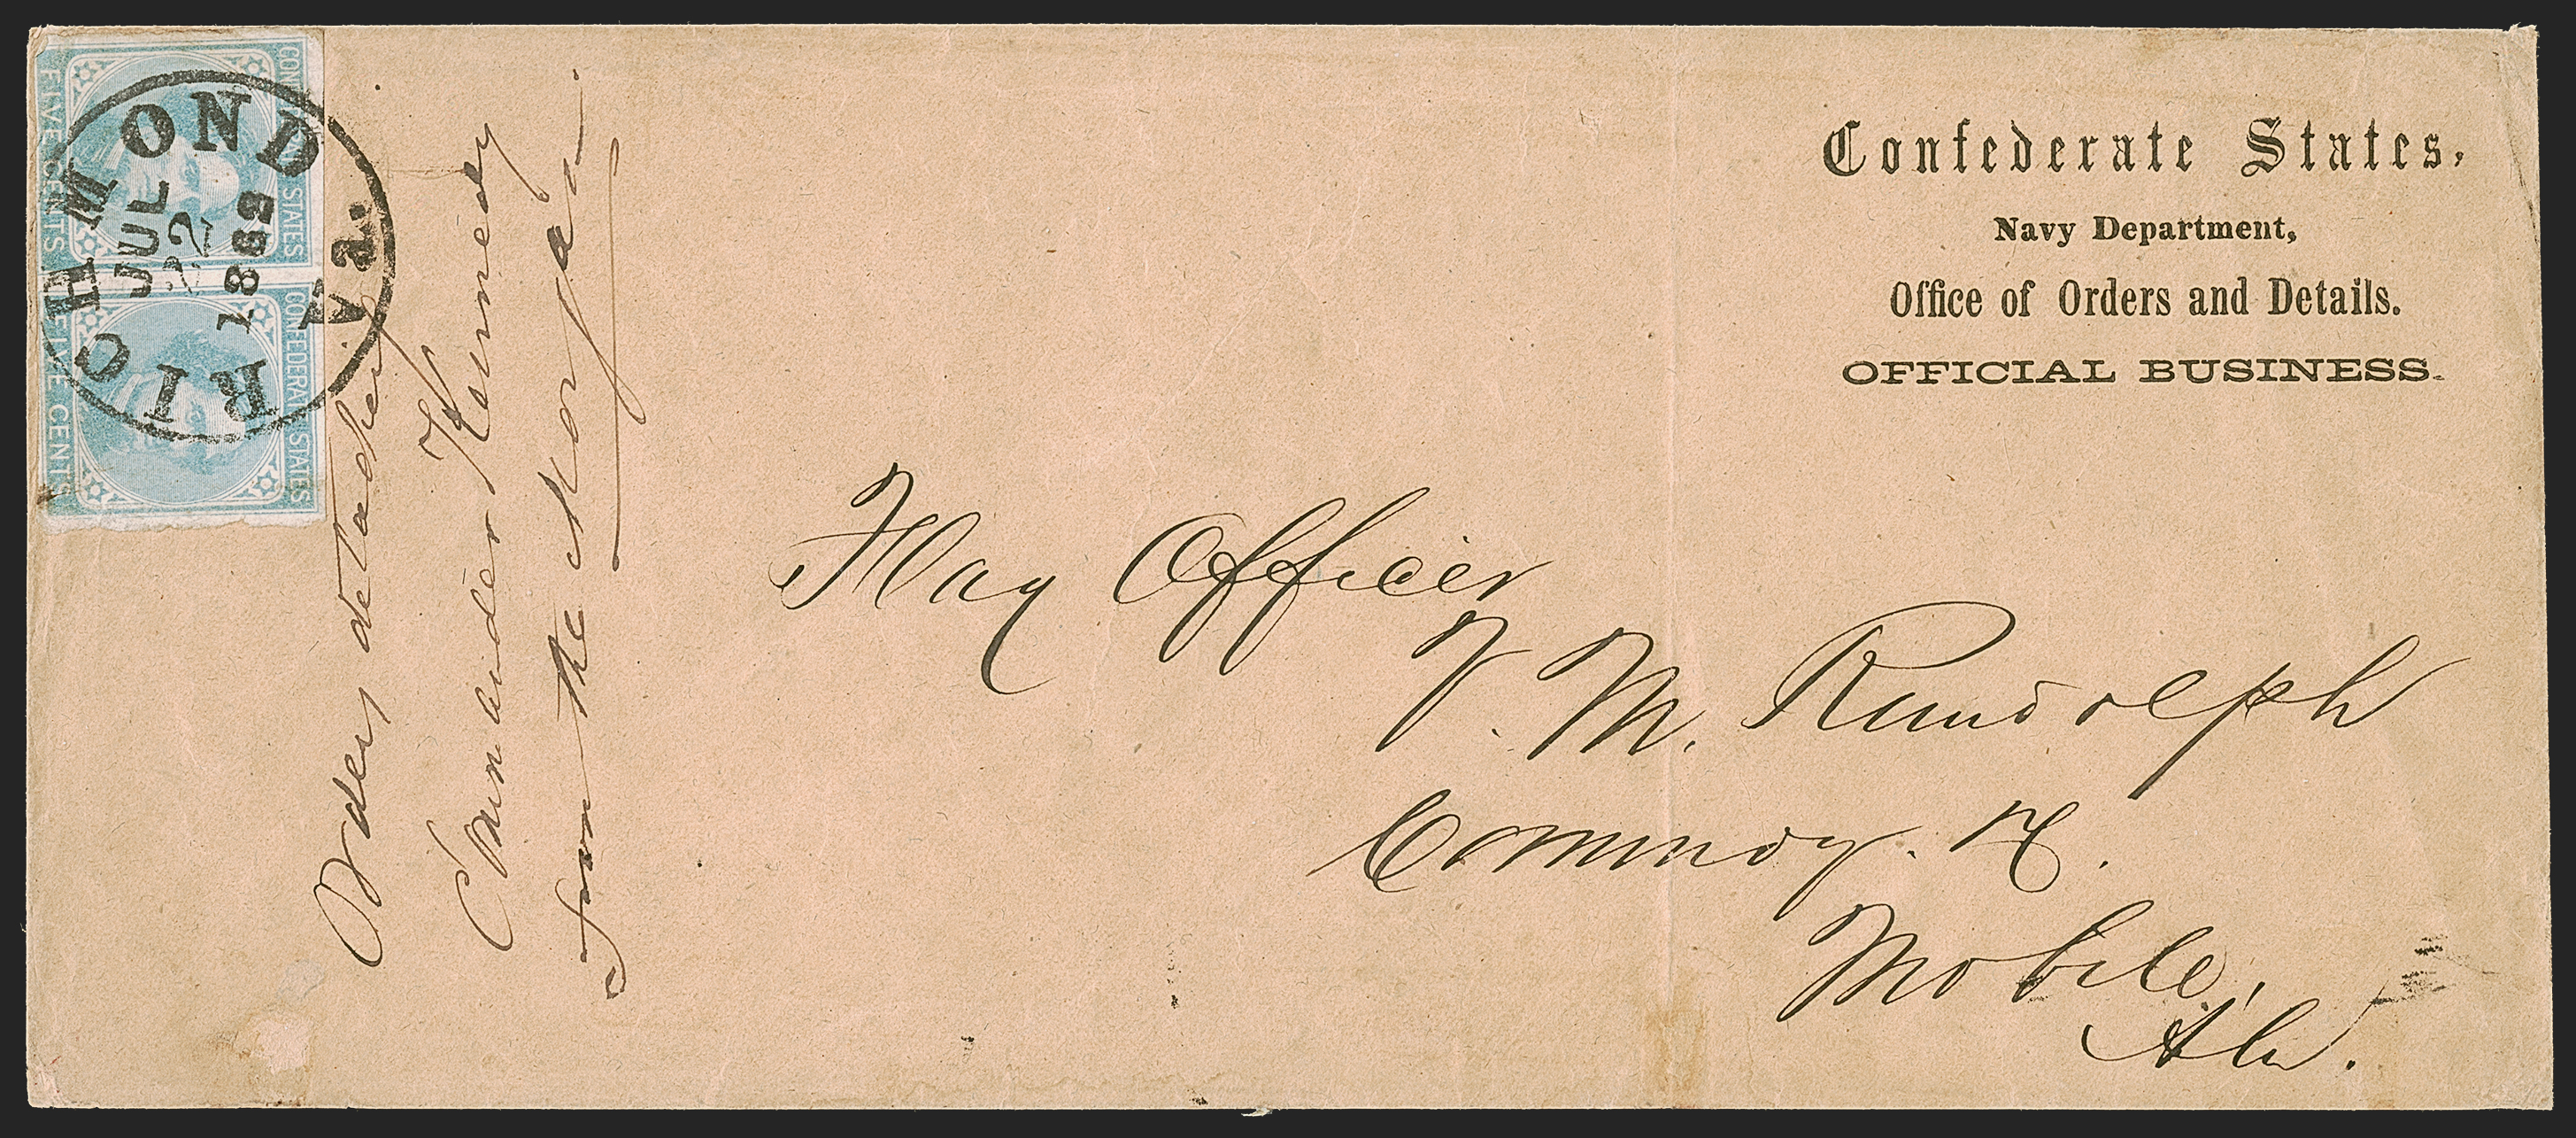 Confederate States,
Navy Department,
Office of Orders and Details.
OFFICIAL BUSINESS.
CONFEDERATE STATES
FIVE CENTS
CONFEDERATE STATES
FIVE CENTS
RICHMOND Va.
JUL
22
1862
Orders detaching
Commander Kennedy
from the Morgan
Flag Officer
V. M. Randolph
Commdg. &.
Mobile,
Ala.